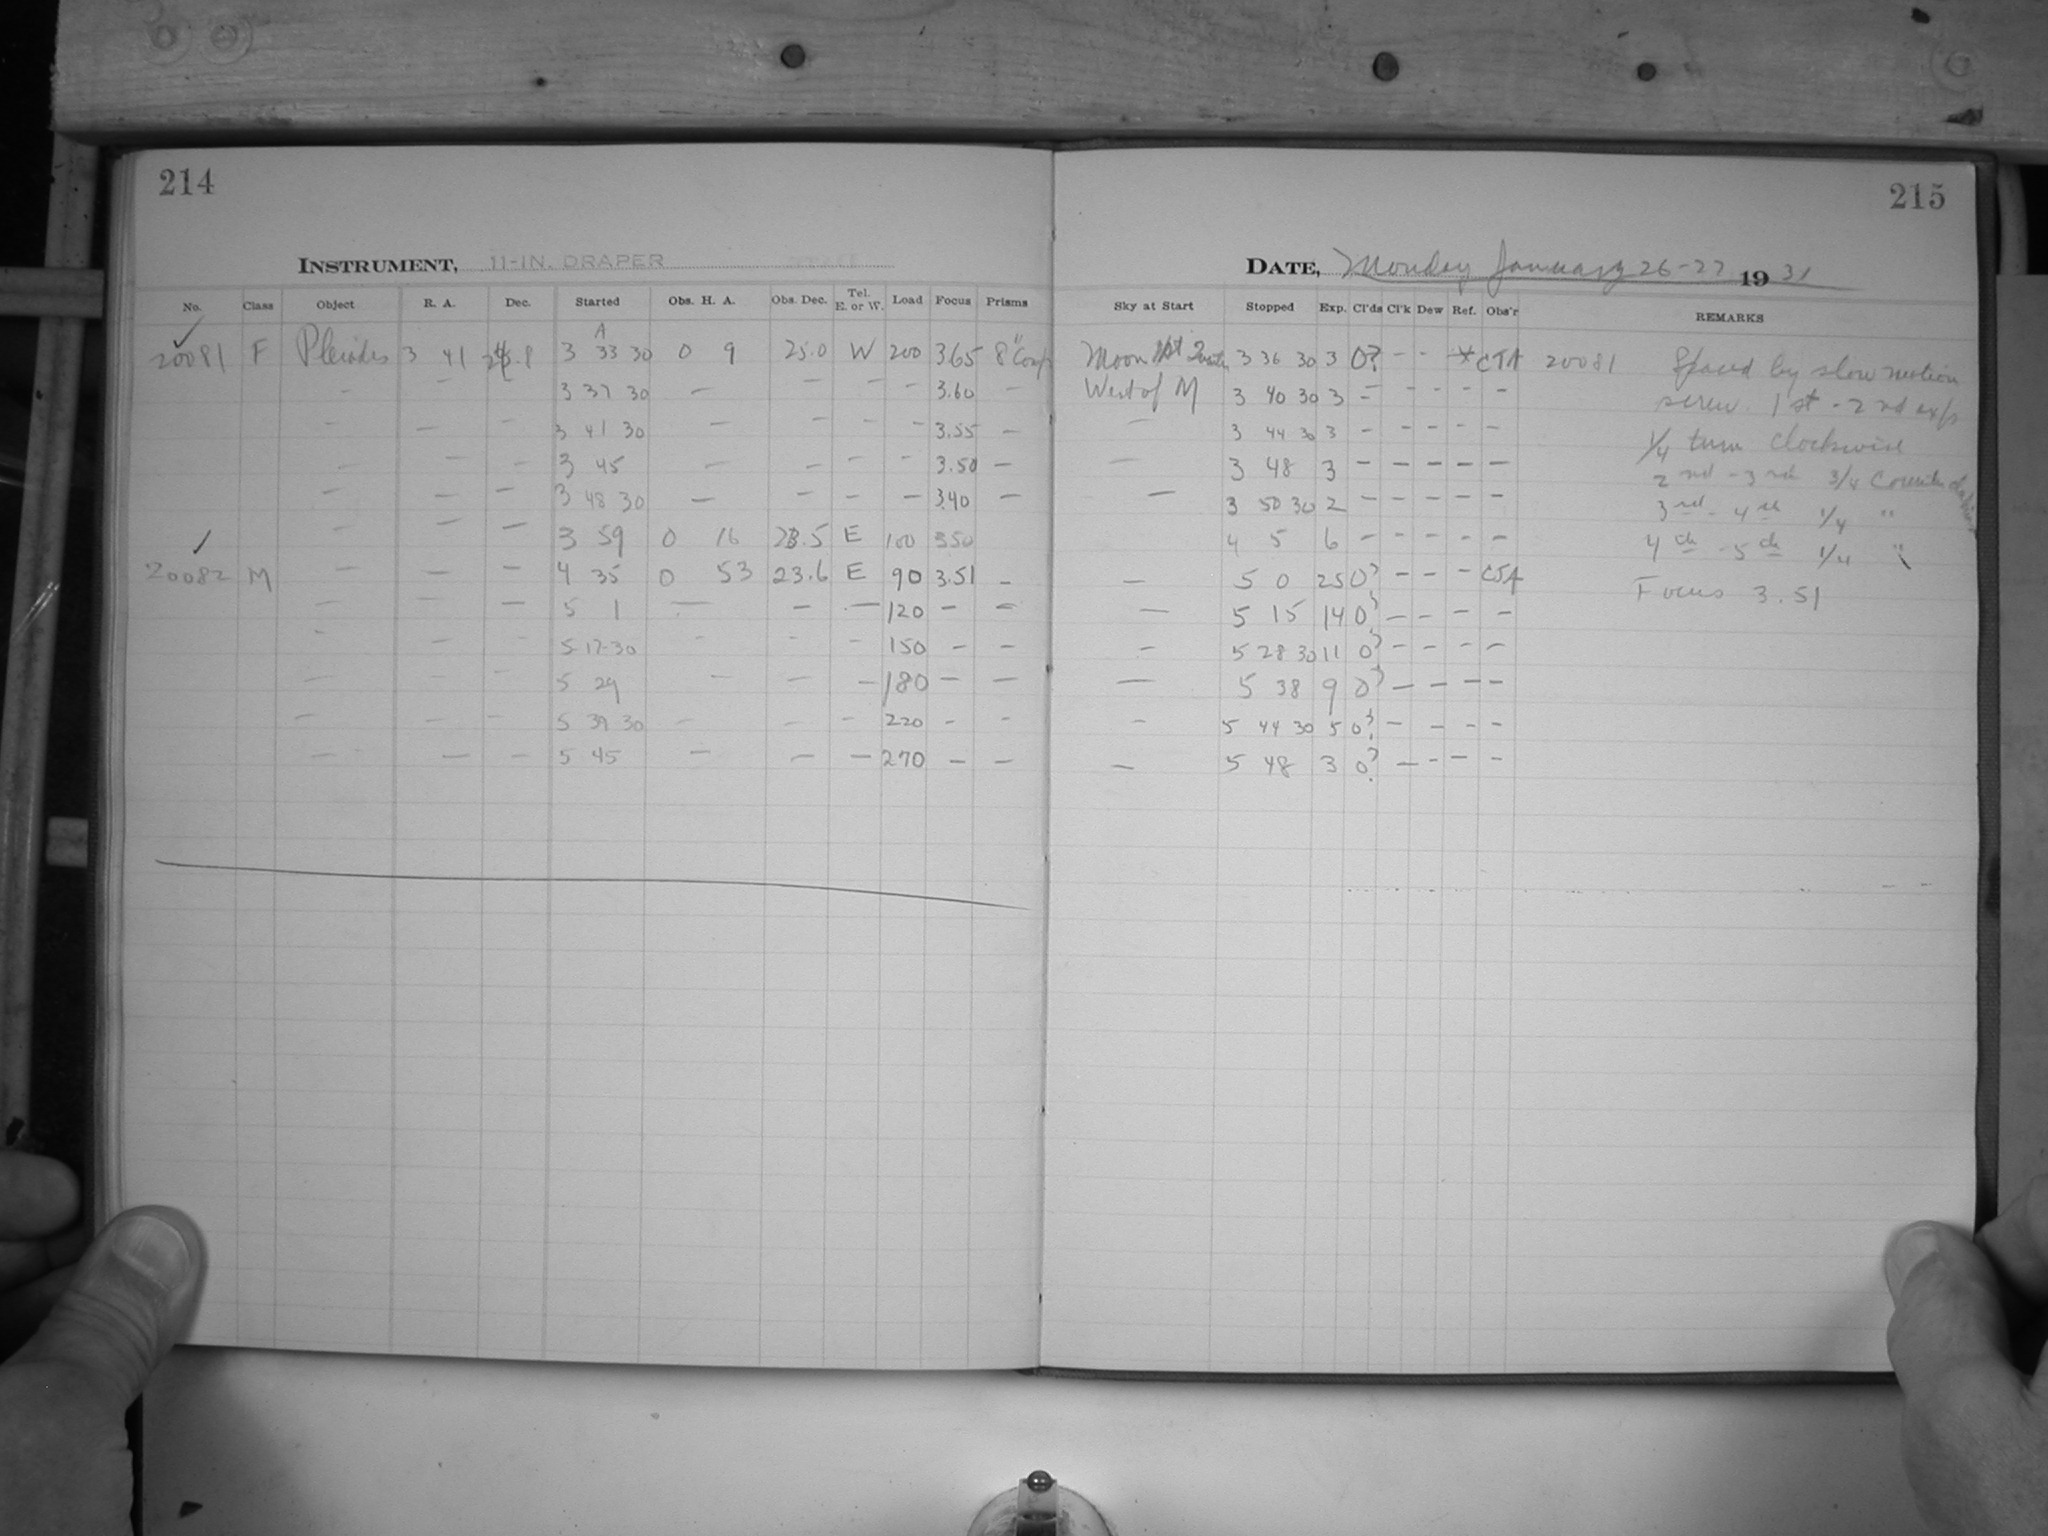 214
INSTRUMENT, 11-IN. DRAPER
No. Class Object R. A. Dec. Started Obs. H. A. Obs. Dec. Tel. E. or W. Load Focus Prisms
A
20081 F Pleiades 3 41 3 33 30 0 9 25.0 W 200 3.65 8"
— 3 37 30 — — — — 3.60 —
— — 3 41 30 — — — — 3.55 —
— — — 3 45 — — — — 3.50 —
— — — 3 48 30 — — — — 3.40 —
— — — 3 59 0 16 23.5 E 100 3.50
20082 M — — — 4 35 0 53 23.6 E 90 3.51 —
— — — 5 1 — — — 120 — —
— — — 5 17 30 — — — 150 — —
— — — 5 29 — — — 180 — —
— — — 5 39 30 — — — 220 — —
— — — 5 45 — — — 270 — —
215
DATE, Monday January 26-27 1931
Sky at Start Stopped Exp. Cl'ds Cl'k Dew Ref. Obs'r REMARKS
Moon 1st 3 36 30 3 0? - - * CJA 20081 Spaced by slow motion
West of M 3 40 30 3 – – – – – screw. 1st - 2nd exp
— 3 44 30 3 – – – – – 1/4 turn clockwise
— 3 48 3 – – – – – 2nd - 3rd 3/4
— 3 50 30 2 – – – – – 3rd - 4th 1/4 "
4 5 6 – – – – – 4th - 5th 1/4 "
— 5 0 25 0? – – – CJA Focus 3.51
— 5 15 14 0? – – – –
— 5 28 30 11 0? – – – –
— 5 38 9 0? – – – –
— 5 44 30 5 0? – – – –
— 5 48 3 0? – – – –